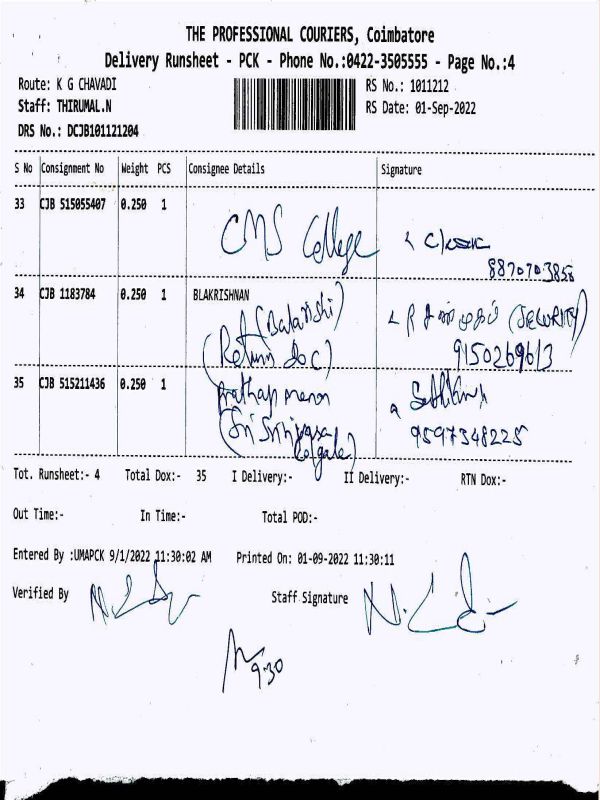 THE PROFESSIONAL COURIERS, Coimbatore
Delivery Runsheet - PCK - Phone No.:0422-3505555 - Page No.:4
Route: K G CHAVADI
RS No.: 1011212
Staff: THIRUMAL.N
RS Date: 01-Sep-2022
DRS No.: DCJB101121204
S No Consignment No Weight PCS Consignee Details Signature
33 CJB 515055407 0.250 1
CMS College
8870703858
34 CJB 1183784 0.250 1 BLAKRISHNAN
(SECURITY)
(Return doc)
9150269613
35 CJB 515211436 0.250 1
Prathap menon
9597348225
Tot. Runsheet:- 4 Total Dox:- 35 I Delivery:- II Delivery:- RTN Dox:-
Out Time:- In Time:- Total POD:-
Entered By :UMAPCK 9/1/2022 11:30:02 AM Printed On: 01-09-2022 11:30:11
Verified By Staff Signature
9.30